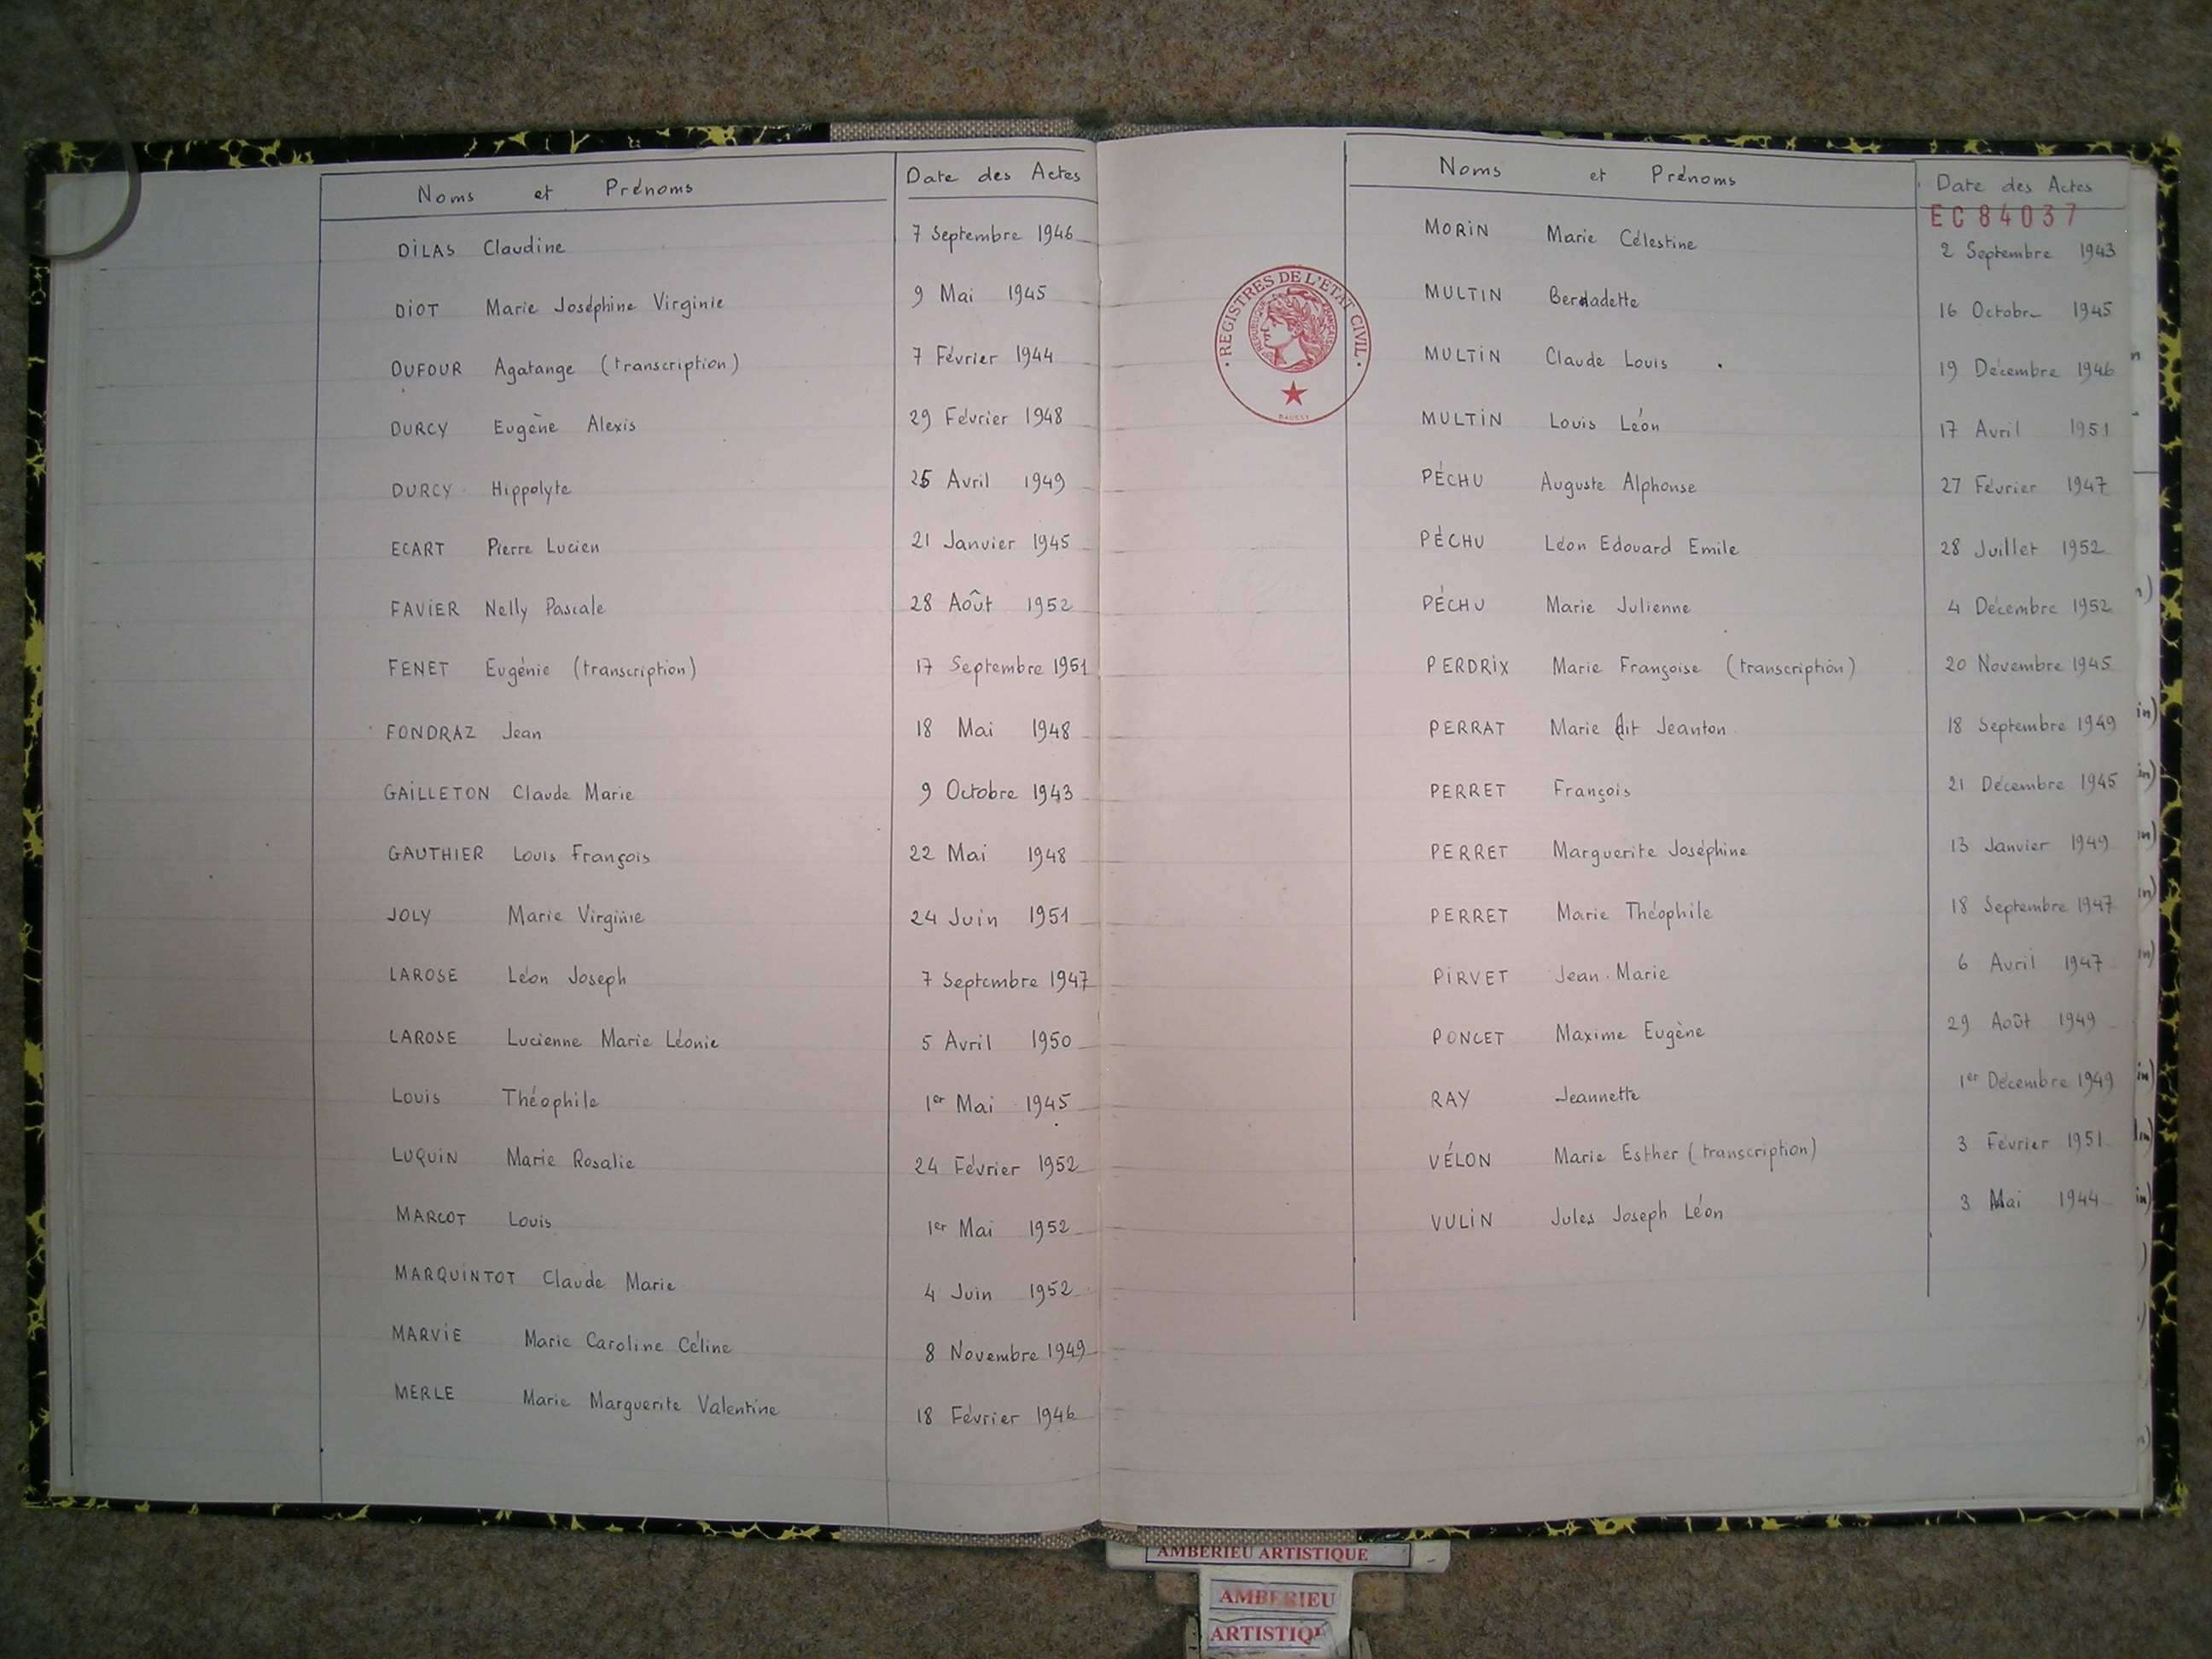 Noms et Prénoms Date des Actes
DILAS Claudine 7 Septembre 1946
DIOT Marie Joséphine Virginie 9 Mai 1945
DUFOUR Agatange (transcription) 7 Février 1944
DURCY Eugène Alexis 29 Février 1948
DURCY Hippolyte 25 Avril 1949
ECART Pierre Lucien 21 Janvier 1945
FAVIER Nelly Pascale 28 Août 1952
FENET Eugénie (transcription) 17 Septembre 1951
FONDRAZ Jean 18 Mai 1948
GAILLETON Claude Marie 9 Octobre 1943
GAUTHIER Louis François 22 Mai 1948
JOLY Marie Virginie 24 Juin 1951
LAROSE Léon Joseph 7 Septembre 1947
LAROSE Lucienne Marie Léonie 5 Avril 1950
LOUIS Théophile 1er Mai 1945
LUQUIN Marie Rosalie 24 Février 1952
MARCOT Louis 1er Mai 1952
MARQUINTOT Claude Marie 4 Juin 1952
MARVIE Marie Caroline Céline 8 Novembre 1949
MERLE Marie Marguerite Valentine 18 Février 1946
Noms et Prénoms Date des Actes
EC84037
REGISTRES DE L'ETAT CIVIL
REPUBLIQUE FRANCAISE
MORIN Marie Célestine 2 Septembre 1943
MULTIN Bernadette 16 Octobre 1945
MULTIN Claude Louis 19 Décembre 1946
MULTIN Louis Léon 17 Avril 1951
PÉCHU Auguste Alphonse 27 Février 1947
PÉCHU Léon Edouard Emile 28 Juillet 1952
PÉCHU Marie Julienne 4 Décembre 1952
PERDRIX Marie Françoise (transcription) 20 Novembre 1945
PERRAT Marie dit Jeanton 18 Septembre 1949
PERRET François 21 Décembre 1945
PERRET Marguerite Joséphine 13 Janvier 1949
PERRET Marie Théophile 18 Septembre 1947
PIRVET Jean-Marie 6 Avril 1947
PONCET Maxime Eugène 29 Août 1949
RAY Jeannette 1er Décembre 1949
VÉLON Marie Esther (transcription) 3 Février 1951
VULIN Jules Joseph Léon 3 Mai 1944
AMBERIEU ARTISTIQUE
AMBERIEU